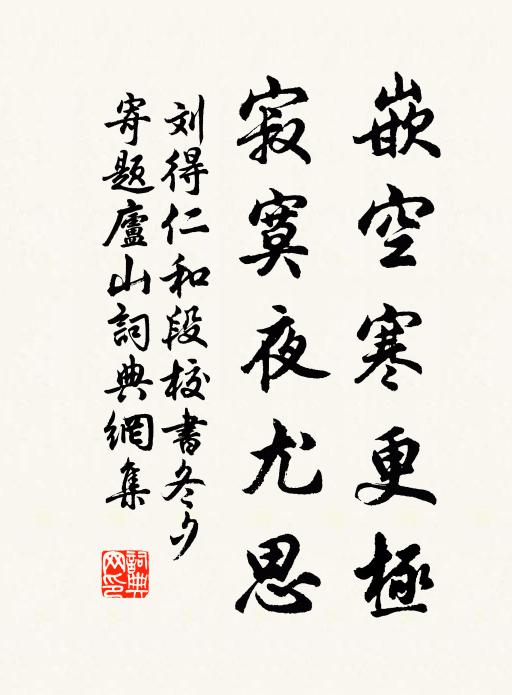 嵌空寒更極
寂寞夜尤思
刘得仁和段校書冬夕
寄題廬山詞典網集
詞典
网印